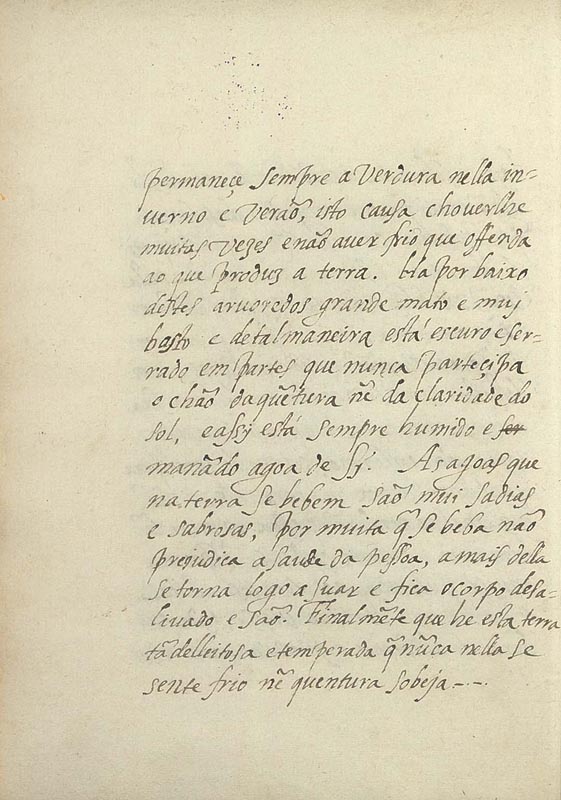 permaneçe sempre a Verdura nella in=
verno e Verão, isto causa choverlhe
muitas vezes e não aver frio que offenda
ao que produz a terra. Ha por baixo
destes arvoredos grande mato e mui
basto e de tal maneira está escuro e ser-
rado em partes que nunca partecipa
o chão da quẽtura nẽ da claridade do
sol, e assy está sempre humido e ser
manãdo agoa de sy. As agoas que
na terra se bebem são mui sadias
e sabrosas, por muita q̃ se beba não
prejudica a saude da pessoa, a mais della
se torna logo a suar e fica o corpo desa-
livado e são. Finalmẽte que he esta terra
tã delleitosa e temperada q̃ nũca nella se
sente frio nẽ quentura sobeja.-.-